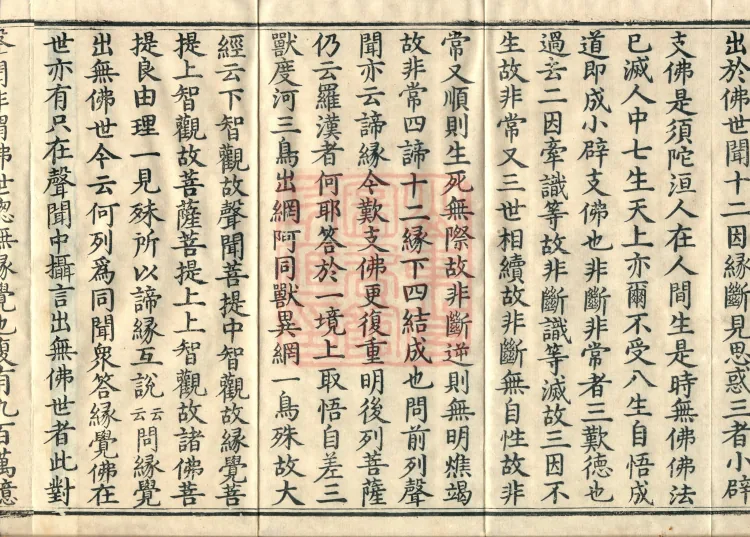 出於佛世聞十二因緣斷見思惑三者小辟
支佛是須陀洹人在人間生是時無佛佛法
已滅人中七生天上亦爾不受八生自悟成
道即成小辟支佛也非斷非常者三歎德也
過去二因牽識等故非斷識等滅故三因不
生故非常又三世相續故非斷無自性故非
常又順則生死無際故非斷逆則無明燋竭
故非常四諦十二緣下四結成也問前列聲
聞亦云諦緣今歎支佛更復重明後列菩薩
仍云羅漢者何耶答於一境上取悟自差三
獸度河三鳥出網阿同獸異網一鳥殊故大
經云下智觀故聲聞菩提中智觀故緣覺菩
提上智觀故菩薩菩提上上智觀故諸佛菩
提良由理一見殊所以諦緣互說云云問緣覺
出無佛世今云何列爲同聞衆答緣覺佛在
世亦有只在聲聞中攝言出無佛世者此對
聲聞非謂佛世㧾無緣覺也復有九百萬億